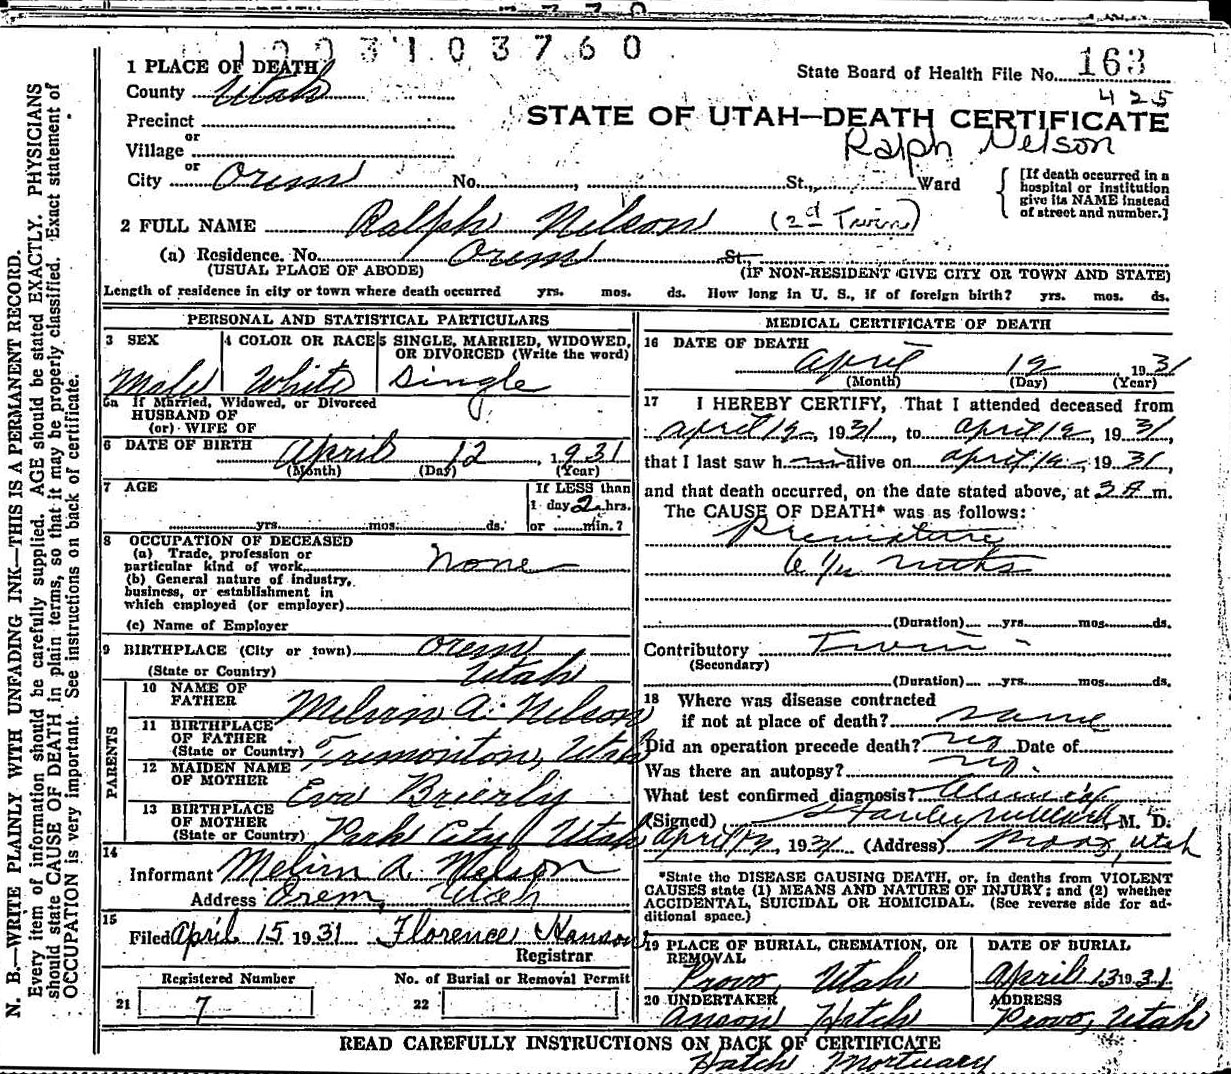 1003103760
1 PLACE OF DEATH
State Board of Health File No. 163
County Utah
425
Precinct
STATE OF UTAH—DEATH CERTIFICATE
or
Village
Ralph Nelson
or
City Orem No. , St., Ward
[If death occurred in a hospital or institution give its NAME instead of street and number.]
2 FULL NAME Ralph Nelson (2d Twin)
(a) Residence. No. Orem St.,
(USUAL PLACE OF ABODE) (IF NON-RESIDENT GIVE CITY OR TOWN AND STATE)
Length of residence in city or town where death occurred yrs. mos. ds. How long in U. S., if of foreign birth? yrs. mos. ds.
PERSONAL AND STATISTICAL PARTICULARS
3 SEX 4 COLOR OR RACE 5 SINGLE, MARRIED, WIDOWED,
OR DIVORCED (Write the word)
Male White Single
6a If Married, Widowed, or Divorced
HUSBAND OF
(or) WIFE OF
6 DATE OF BIRTH April 12 1931
(Month) (Day) (Year)
7 AGE If LESS than
1 day 2 hrs.
yrs. mos. ds. or min.?
8 OCCUPATION OF DECEASED
(a) Trade, profession or
particular kind of work None
(b) General nature of industry,
business, or establishment in
which employed (or employer)
(c) Name of Employer
9 BIRTHPLACE (City or town) Orem
(State or Country) Utah
PARENTS
10 NAME OF
FATHER Melvin A. Nelson
11 BIRTHPLACE
OF FATHER
(State or Country) Tremonton, Utah
12 MAIDEN NAME
OF MOTHER Eva Brierly
13 BIRTHPLACE
OF MOTHER
(State or Country) Park City, Utah
14
Informant Melvin A. Nelson
Address Orem, Utah
15
Filed April 15 1931 Florence Hanson
Registrar
Registered Number No. of Burial or Removal Permit
21 7 22
MEDICAL CERTIFICATE OF DEATH
16 DATE OF DEATH
April 12 1931
(Month) (Day) (Year)
17 I HEREBY CERTIFY, That I attended deceased from
April 12, 1931, to April 12, 1931,
that I last saw h alive on April 12, 1931,
and that death occurred, on the date stated above, at 3 A m.
The CAUSE OF DEATH* was as follows:
Premature
6 1/2 mths
(Duration) yrs. mos. ds.
Contributory Twin
(Secondary)
(Duration) yrs. mos. ds.
18 Where was disease contracted
if not at place of death? same
Did an operation precede death? no Date of
Was there an autopsy? no.
What test confirmed diagnosis?
(Signed) Stanley M. D.
April 12, 1931 (Address) Provo, Utah
*State the DISEASE CAUSING DEATH, or, in deaths from VIOLENT
CAUSES state (1) MEANS AND NATURE OF INJURY; and (2) whether
ACCIDENTAL, SUICIDAL OR HOMICIDAL. (See reverse side for ad-
ditional space.)
19 PLACE OF BURIAL, CREMATION, OR DATE OF BURIAL
REMOVAL
Provo, Utah April 13 1931
20 UNDERTAKER ADDRESS
Anson Hatch Provo, Utah
READ CAREFULLY INSTRUCTIONS ON BACK OF CERTIFICATE
Hatch Mortuary
N. B.—WRITE PLAINLY WITH UNFADING INK—THIS IS A PERMANENT RECORD.
Every item of information should be carefully supplied. AGE should be stated EXACTLY. PHYSICIANS
should state CAUSE OF DEATH in plain terms, so that it may be properly classified. Exact statement of
OCCUPATION is very important. See instructions on back of certificate.